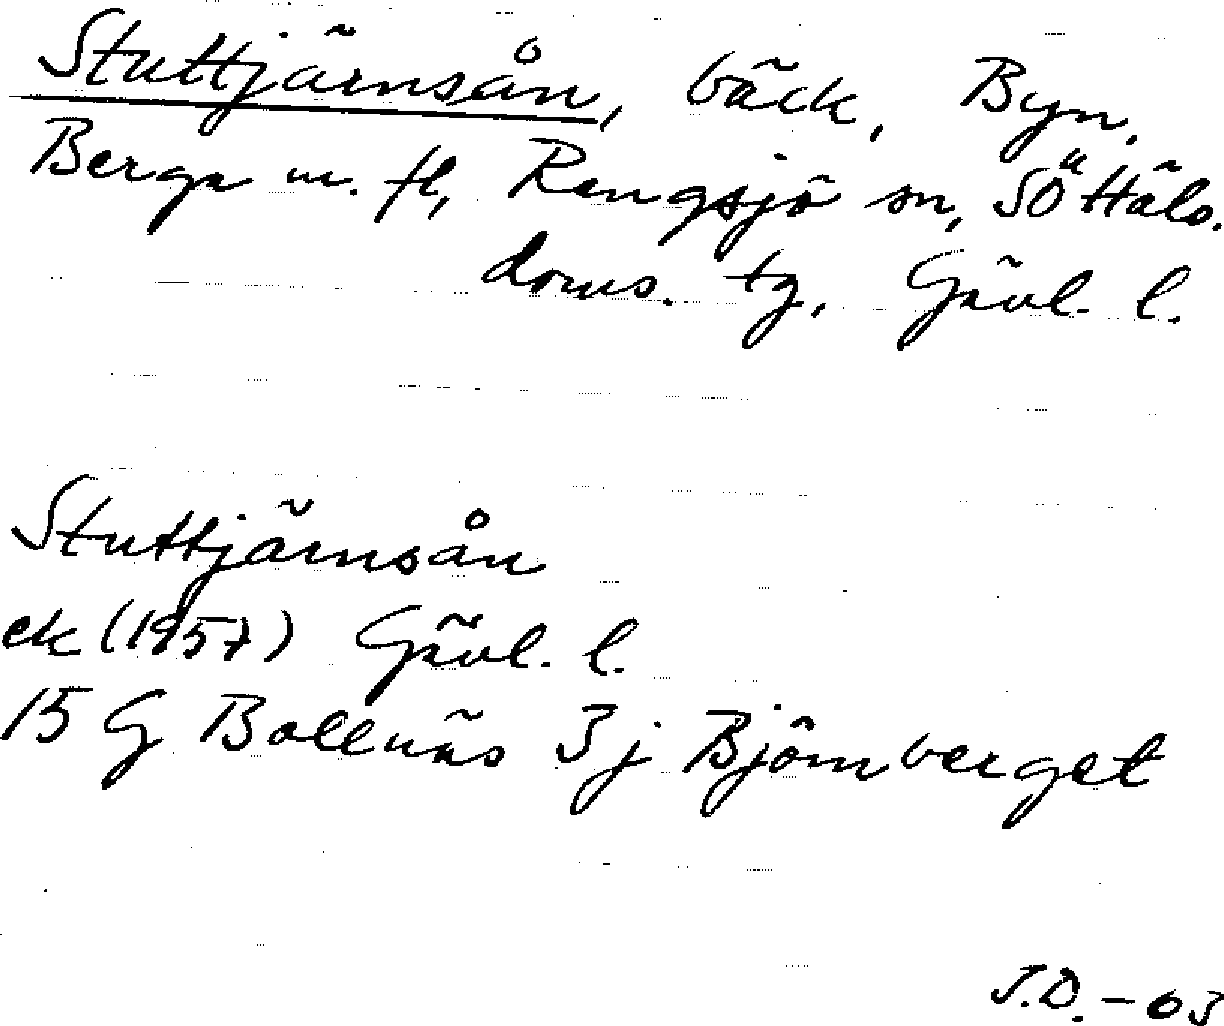 Stuttjärnsån, bäck, Byn,
Berga m. fl, Rengsjö sn, Sö Häls.
doms. tg, Gävl. l.
Stuttjärnsån
ek (1957) Gävl. l.
15 G Bollnäs 3 j Björnberget
J.D. - 03